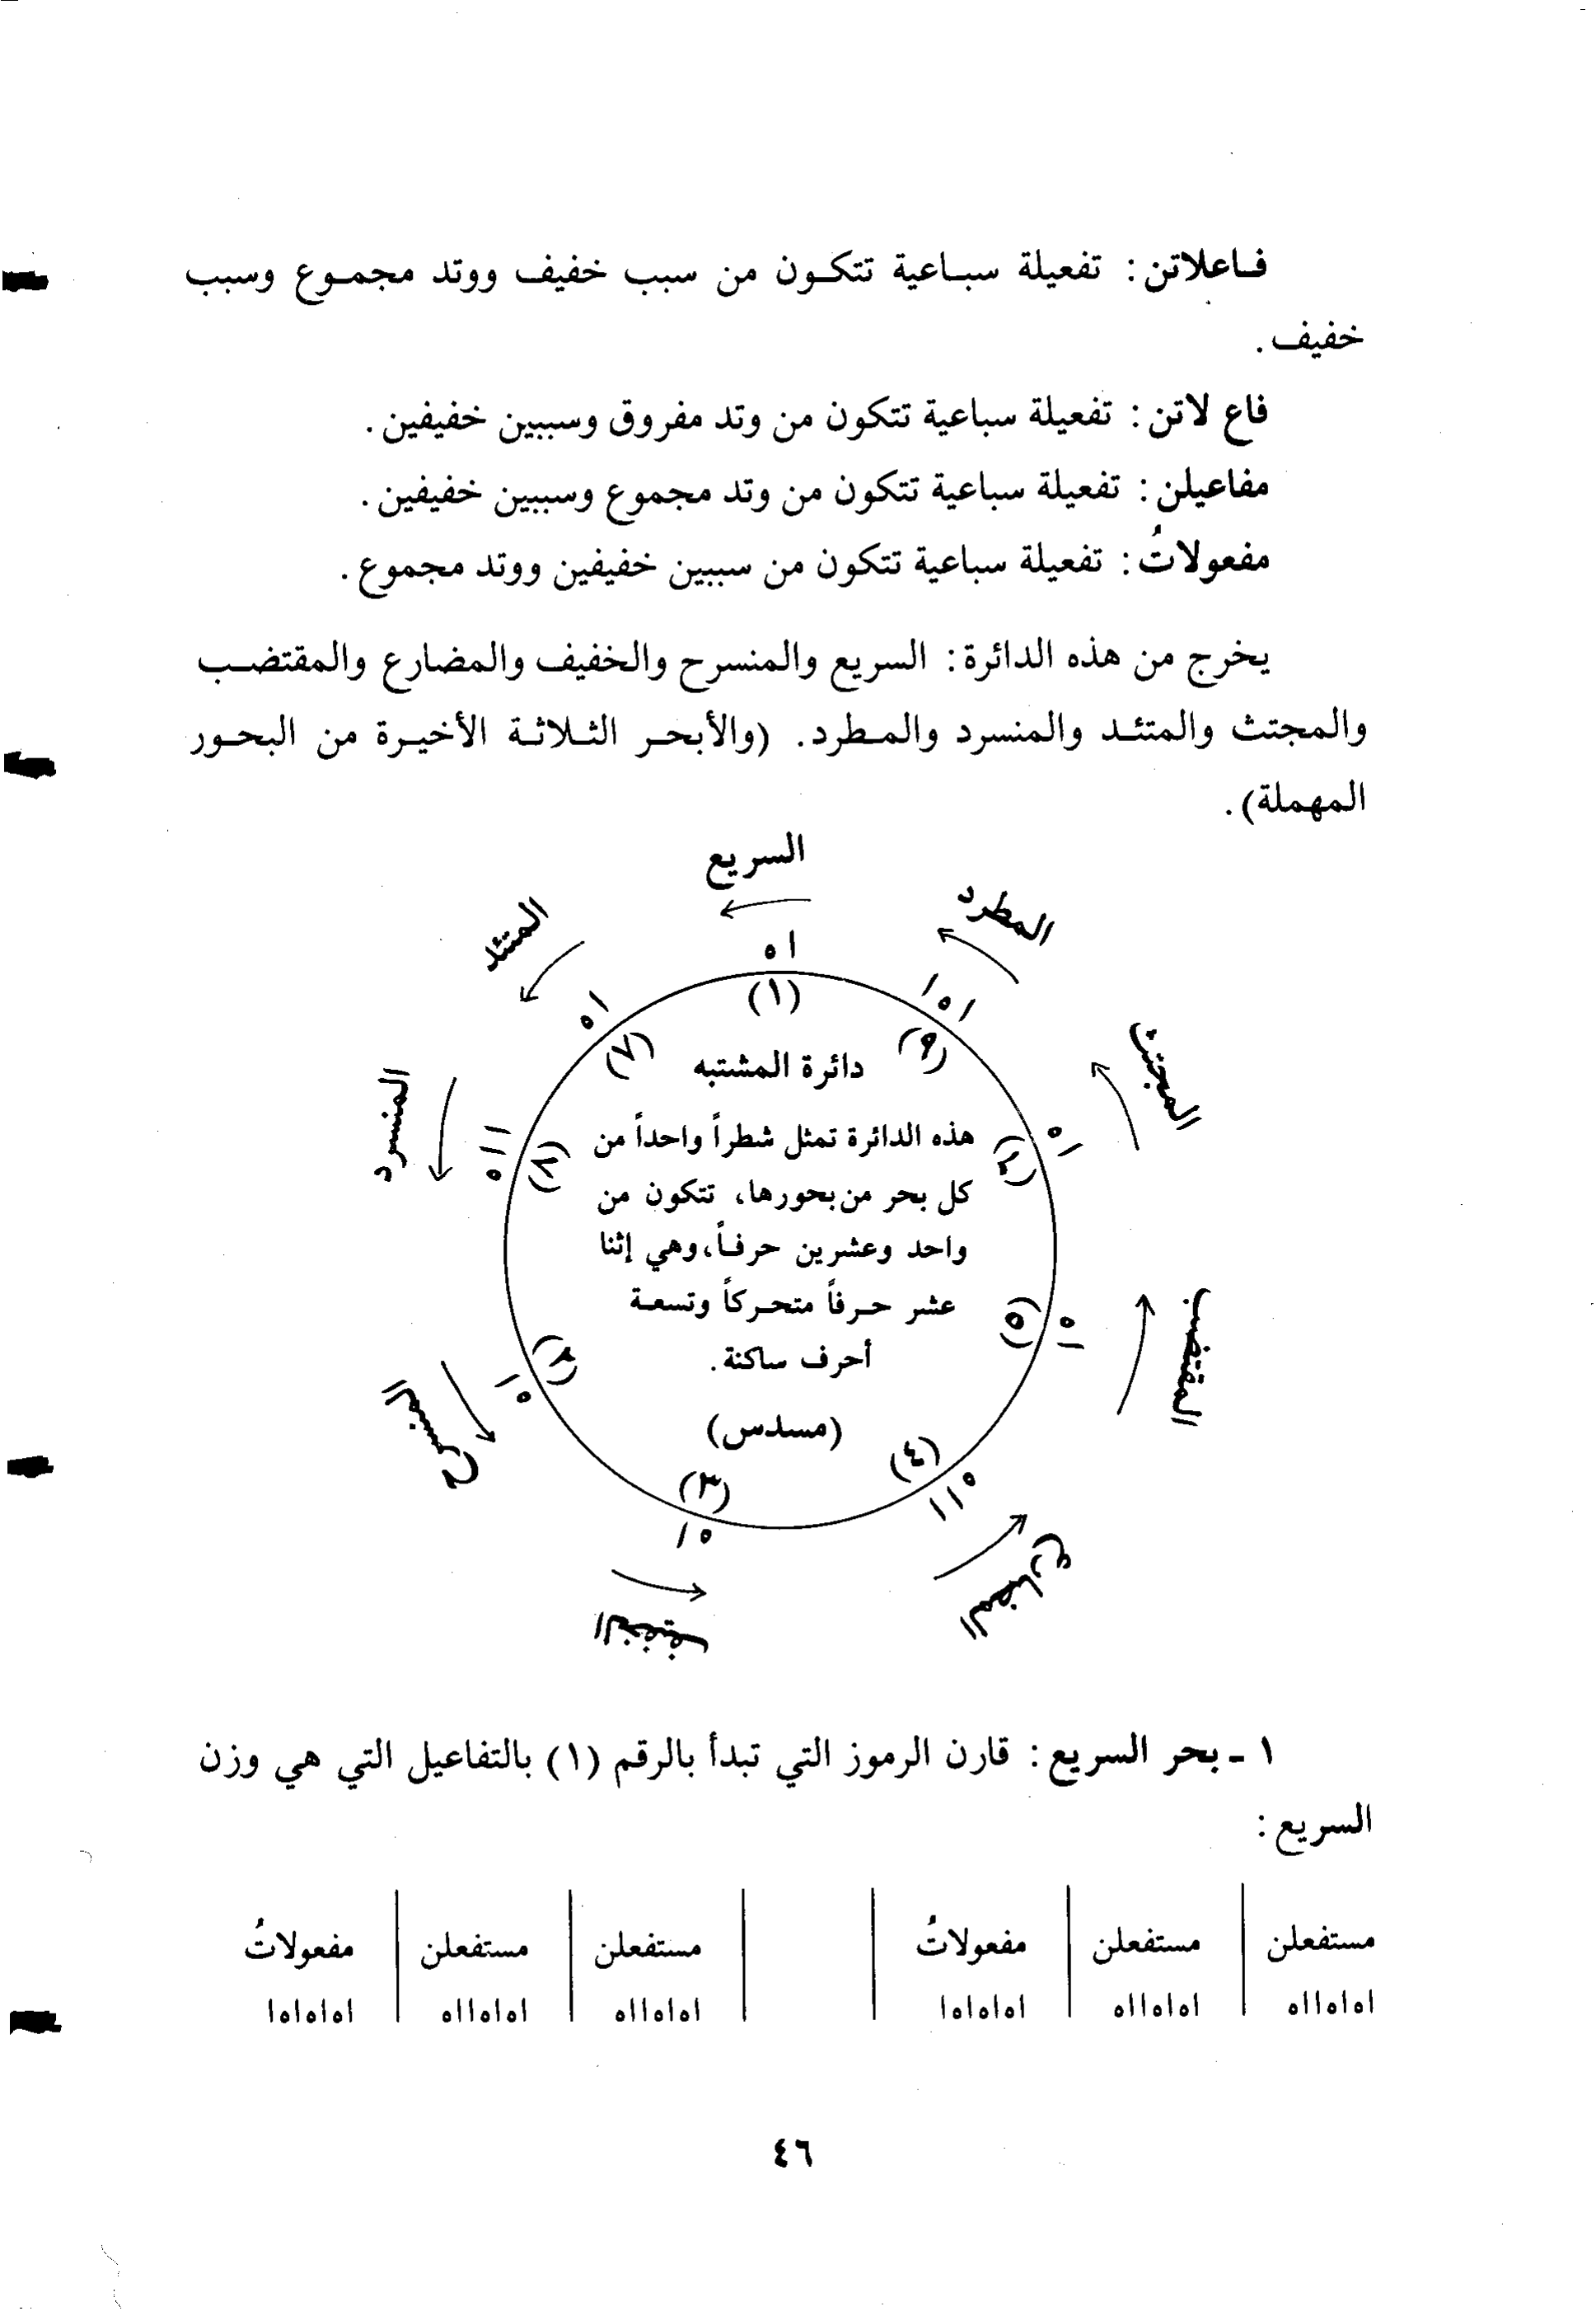 فـاعلاتن : تفعيلة سبـاعية تتكـون من سبب خفيف ووتد مجمـوع وسبب
خفيف .
فاع لاتن : تفعيلة سباعية تتكون من وتد مفروق وسببين خفيفين .
مفاعيلن : تفعيلة سباعية تتكون من وتد مجموع وسببين خفيفين .
مفعولاتُ : تفعيلة سباعية تتكون من سببين خفيفين ووتد مجموع .
يخرج من هذه الدائرة : السريع والمنسرح والخفيف والمضارع والمقتضـب
والمجتث والمتئـد والمنسرد والمـطرد . (والأبحـر الثـلاثـة الأخيـرة من البحـور
المهملة) .
السريع
المطرد
المتئد
ا ه
ا ه ا
ا ه
(١)
(٩)
(٧)
المجتث
المنسرد
دائرة المشتبه
ا ه
ا ا ه
(٦)
(٨)
هذه الدائرة تمثل شطراً واحداً من
كل بحر من بحورها، تتكون من
واحد وعشرين حرفـاً، وهي إثنا
عشر حـرفاً متحـركاً وتسعـة
أحرف ساكنة .
(مسدس)
المقتضب
ا ه
(٥)
(٢)
ا ه
المنسرح
(٤)
ا ا ه
(٣)
ا ه
المضارع
الخفيف
١ - بحر السريع : قارن الرموز التي تبدأ بالرقم (١) بالتفاعيل التي هي وزن
السريع :
مستفعلن | مستفعلن | مفعولاتُ | | مستفعلن | مستفعلن | مفعولاتُ
ا ه ا ه ا ا ه | ا ه ا ه ا ا ه | ا ه ا ه ا ه ا | | ا ه ا ه ا ا ه | ا ه ا ه ا ا ه | ا ه ا ه ا ه ا
٤٦